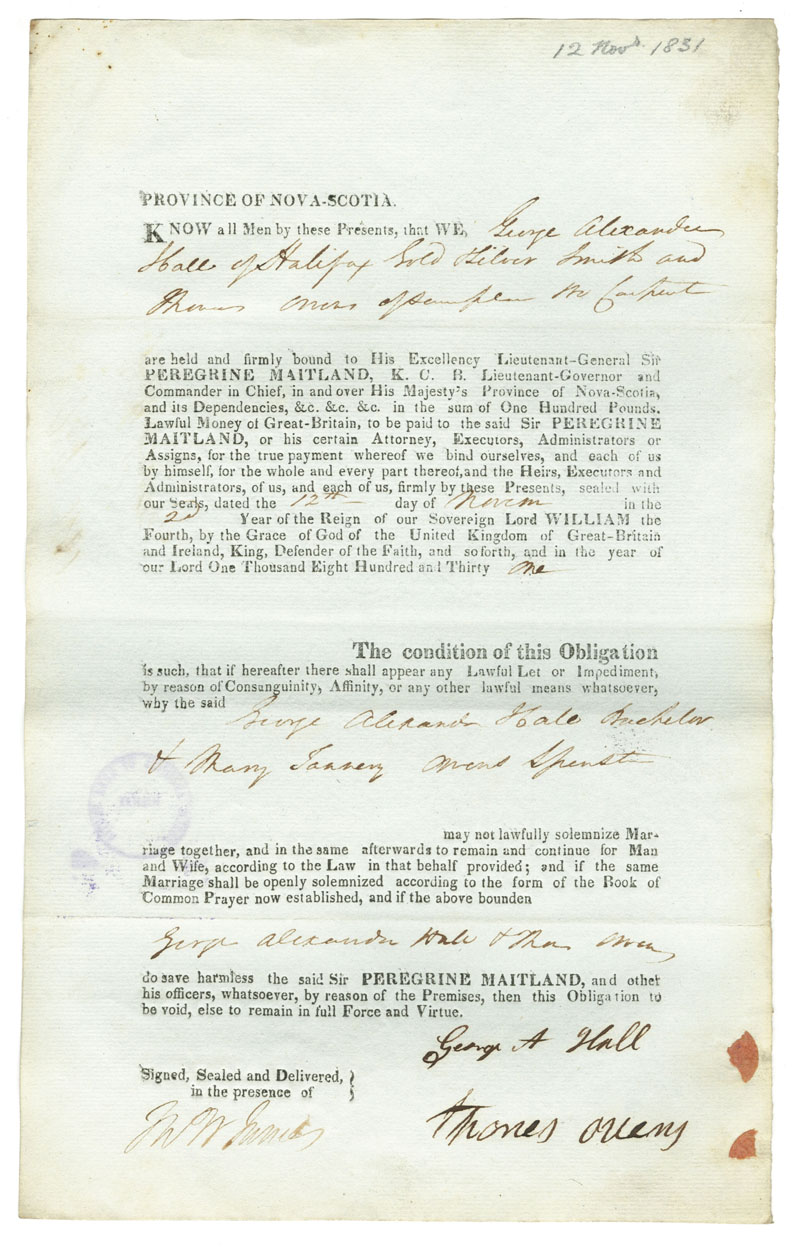 12 Novr 1831
PROVINCE OF NOVA-SCOTIA.
KNOW all Men by these Presents, that WE, George Alexander
Hall of Halifax Gold & Silver Smith and
Thomas Owens of same place
are held and firmly bound to His Excellency Lieutenant-General Sir
PEREGRINE MAITLAND, K. C. B. Lieutenant-Governor and
Commander in Chief, in and over His Majesty's Province of Nova-Scotia,
and its Dependencies, &c. &c. &c. in the sum of One Hundred Pounds,
Lawful Money of Great-Britain, to be paid to the said Sir PEREGRINE
MAITLAND, or his certain Attorney, Executors, Administrators or
Assigns, for the true payment whereof we bind ourselves, and each of us
by himself, for the whole and every part thereof, and the Heirs, Executors and
Administrators, of us, and each of us, firmly by these Presents, sealed with
our Seals, dated the 12th day of Novem in the
2d Year of the Reign of our Sovereign Lord WILLIAM the
Fourth, by the Grace of God of the United Kingdom of Great-Britain
and Ireland, King, Defender of the Faith, and soforth, and in the year of
our Lord One Thousand Eight Hundred and Thirty One
The condition of this Obligation
is such, that if hereafter there shall appear any Lawful Let or Impediment,
by reason of Consanguinity, Affinity, or any other lawful means whatsoever,
why the said
George Alexander Hall Bachelor
& Mary Owens Spinster
may not lawfully solemnize Mar-
riage together, and in the same afterwards to remain and continue for Man
and Wife, according to the Law in that behalf provided; and if the same
Marriage shall be openly solemnized according to the form of the Book of
Common Prayer now established, and if the above bounden
George Alexander Hall & Thos Owens
do save harmless the said Sir PEREGRINE MAITLAND, and other
his officers, whatsoever, by reason of the Premises, then this Obligation to
be void, else to remain in full Force and Virtue.
George A Hall
Signed, Sealed and Delivered,
in the presence of
Thomes Owens